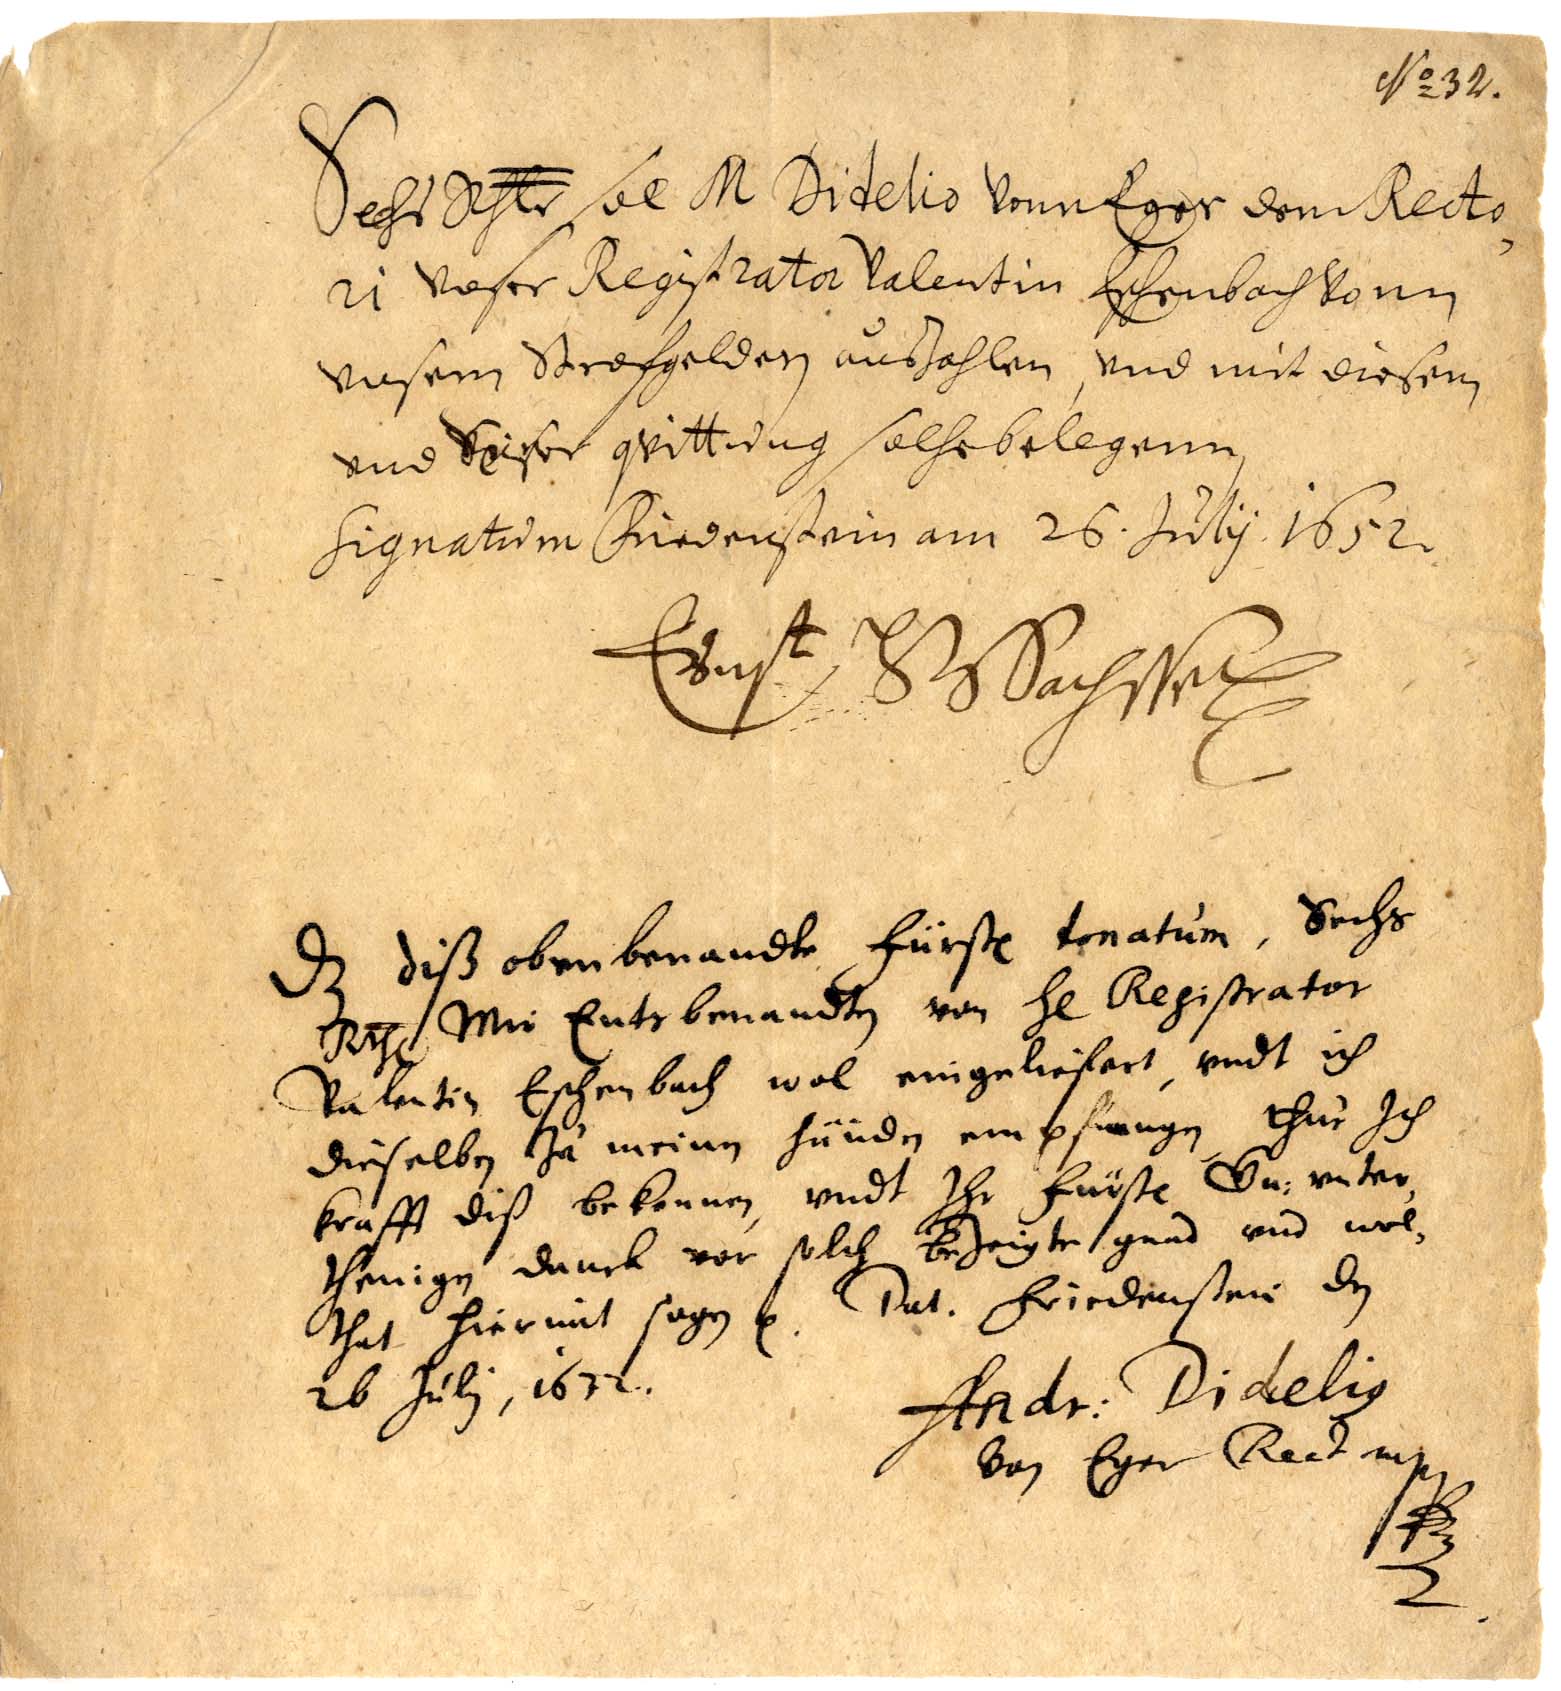 No 32.
Sechs Rthlr sol M Didelio vonn Eger dem Recto,
ri vnser Registrator Valentin Eschenbach vonn
vnsern Strafgeldern auszahlen, vnd mit diesem
vnd dieser qvittung solche belegenn,
Signatum Friedenstein am 26. Julij. 1652.
Ernst H Z Sachssen
Dz diß obenbenandte fürstl donatum, Sechs
Rthl Mir Entsbenandten von He Registrator
Valentin Eschenbach wol eingeliefert, vndt ich
dieselben Zu meinen händen empfangen, thue Ich
krafft diß bekennen, vndt Ihr fürstl Gn: vnter,
thenigen danck vor solch bezeigte gnad vnd wol,
that hiermit sagen. Dat. Friedenstein den
26 Julij, 1652.
Andr: Didelig
von Eger Rect mp